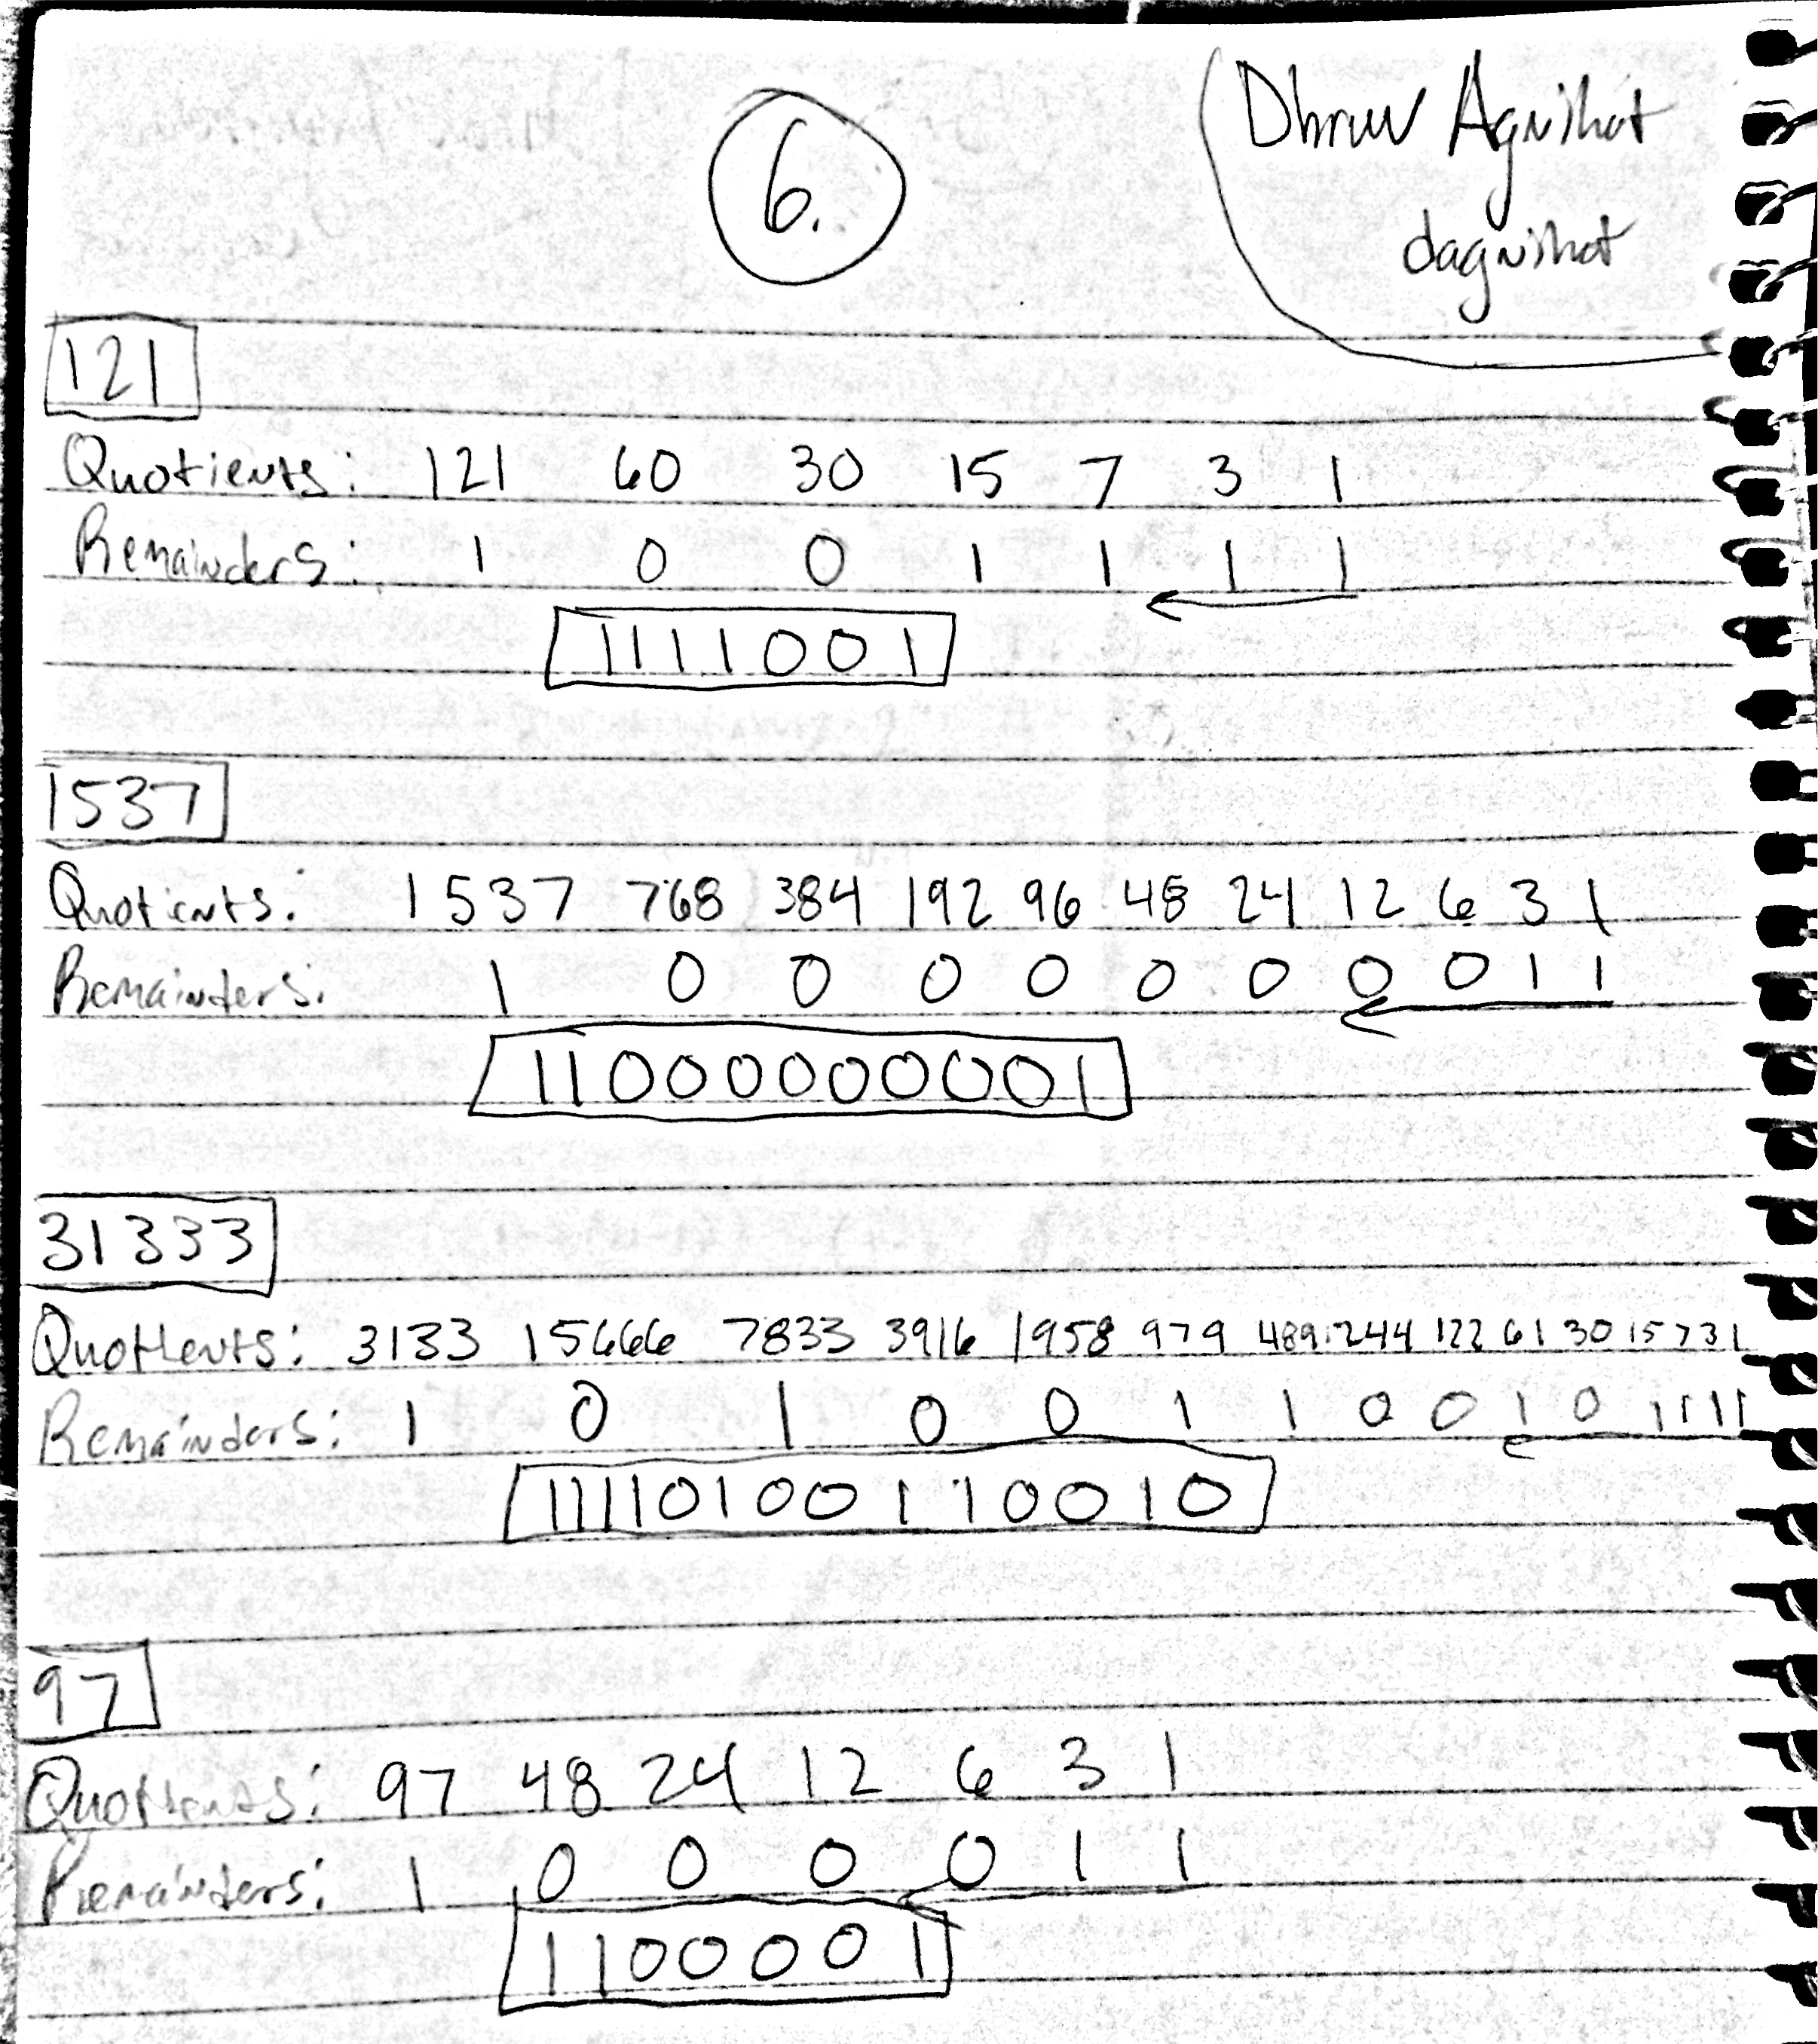 6.
Dhruv Agnihot
dagnihot
121
Quotients: 121 60 30 15 7 3 1
Remainders: 1 0 0 1 1 1 1
1111001
1537
Quotients: 1537 768 384 192 96 48 24 12 6 3 1
Remainders: 1 0 0 0 0 0 0 0 0 1 1
11000000001
31333
Quotients: 3133 15666 7833 3916 1958 979 489 244 122 61 30 15 7 3 1
Remainders: 1 0 1 0 0 1 1 0 0 1 0 1 1 1 1
11110100110010
97
Quotients: 97 48 24 12 6 3 1
Remainders: 1 0 0 0 0 1 1
1100001